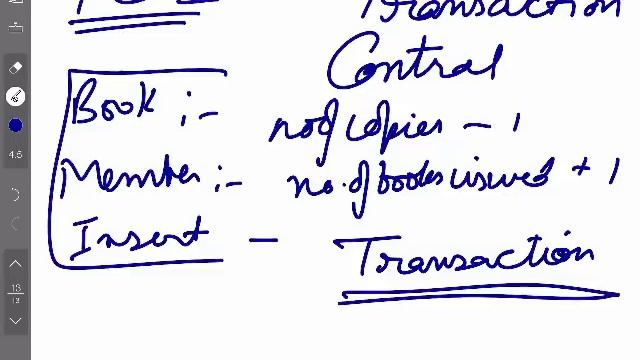 Transaction
Control
Book :- no of copies - 1
Member :- no. of books issued + 1
Insert - Transaction
4.5
13
13